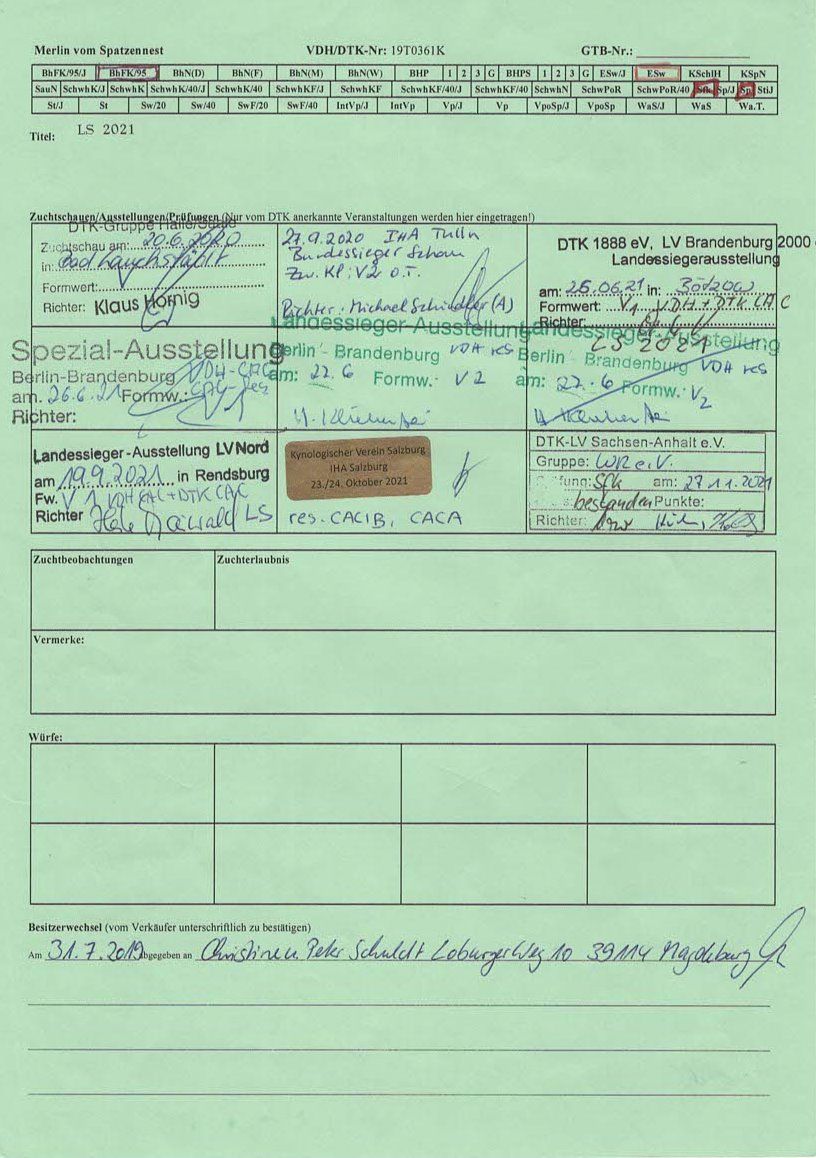 Merlin vom Spatzennest VDH/DTK-Nr: 19T0361K GTB-Nr.:
BhFK/95/J BhFK/95 BhN(D) BhN(F) BhN(M) BhN(W) BHP 1 2 3 G BHPS 1 2 3 G ESw/J ESw KSchlH KSpN
SauN SchwhK/J SchwhK SchwhK/40/J SchwhK/40 SchwhKF/J SchwhKF SchwhKF/40/J SchwhKF/40 SchwhN SchwPoR SchwPoR/40 Sfk Sp/J Sp StiJ
St/J St Sw/20 Sw/40 SwF/20 SwF/40 IntVp/J IntVp Vp/J Vp VpoSp/J VpoSp WaS/J WaS Wa.T.
Titel: LS 2021
Zuchtschauen/Ausstellungen/Prüfungen (Nur vom DTK anerkannte Veranstaltungen werden hier eingetragen!)
DTK-Gruppe Halle/Saale
Zuchtschau am: 20.6.2020
in: Bad Lauchstädt
Formwert:
Richter: Klaus Hornig
27.9.2020 IHA Tulln
Bundessieger Schau
Zw. Kl: V2 o.T.
Richter: Michael Schindler (A)
DTK 1888 eV, LV Brandenburg 2000
Landessiegerausstellung
am: 25.06.21 in: Bötzow
Formwert: V1 VDH + DTK CAC
Richter:
LS 2021
Spezial-Ausstellung
Berlin-Brandenburg VDH-CAC
am. 26.6.21 Formw.: CAC-Res
V1
Richter:
Landessieger-Ausstellung
Berlin - Brandenburg VDH res
am: 27.6 Formw.: V2
Landessieger-Ausstellung
Berlin - Brandenburg VDH res
am: 27.6 Formw.: V2
Landessieger-Ausstellung LV Nord
am 19.9.2021 in Rendsburg
Fw. V1 VDH CAC + DTK CAC
Richter LS
Kynologischer Verein Salzburg
IHA Salzburg
23./24. Oktober 2021
res. CACIB, CACA
DTK-LV Sachsen-Anhalt e.V.
Gruppe: WR e.V.
Sfk am: 27.11.2021
bestanden Punkte:
Richter:
Zuchtbeobachtungen Zuchterlaubnis
Vermerke:
Würfe:
Besitzerwechsel (vom Verkäufer unterschriftlich zu bestätigen)
Am 31.7.2019 abgegeben an Christine u. Peter Schuldt Loburger Weg 10 39114 Magdeburg